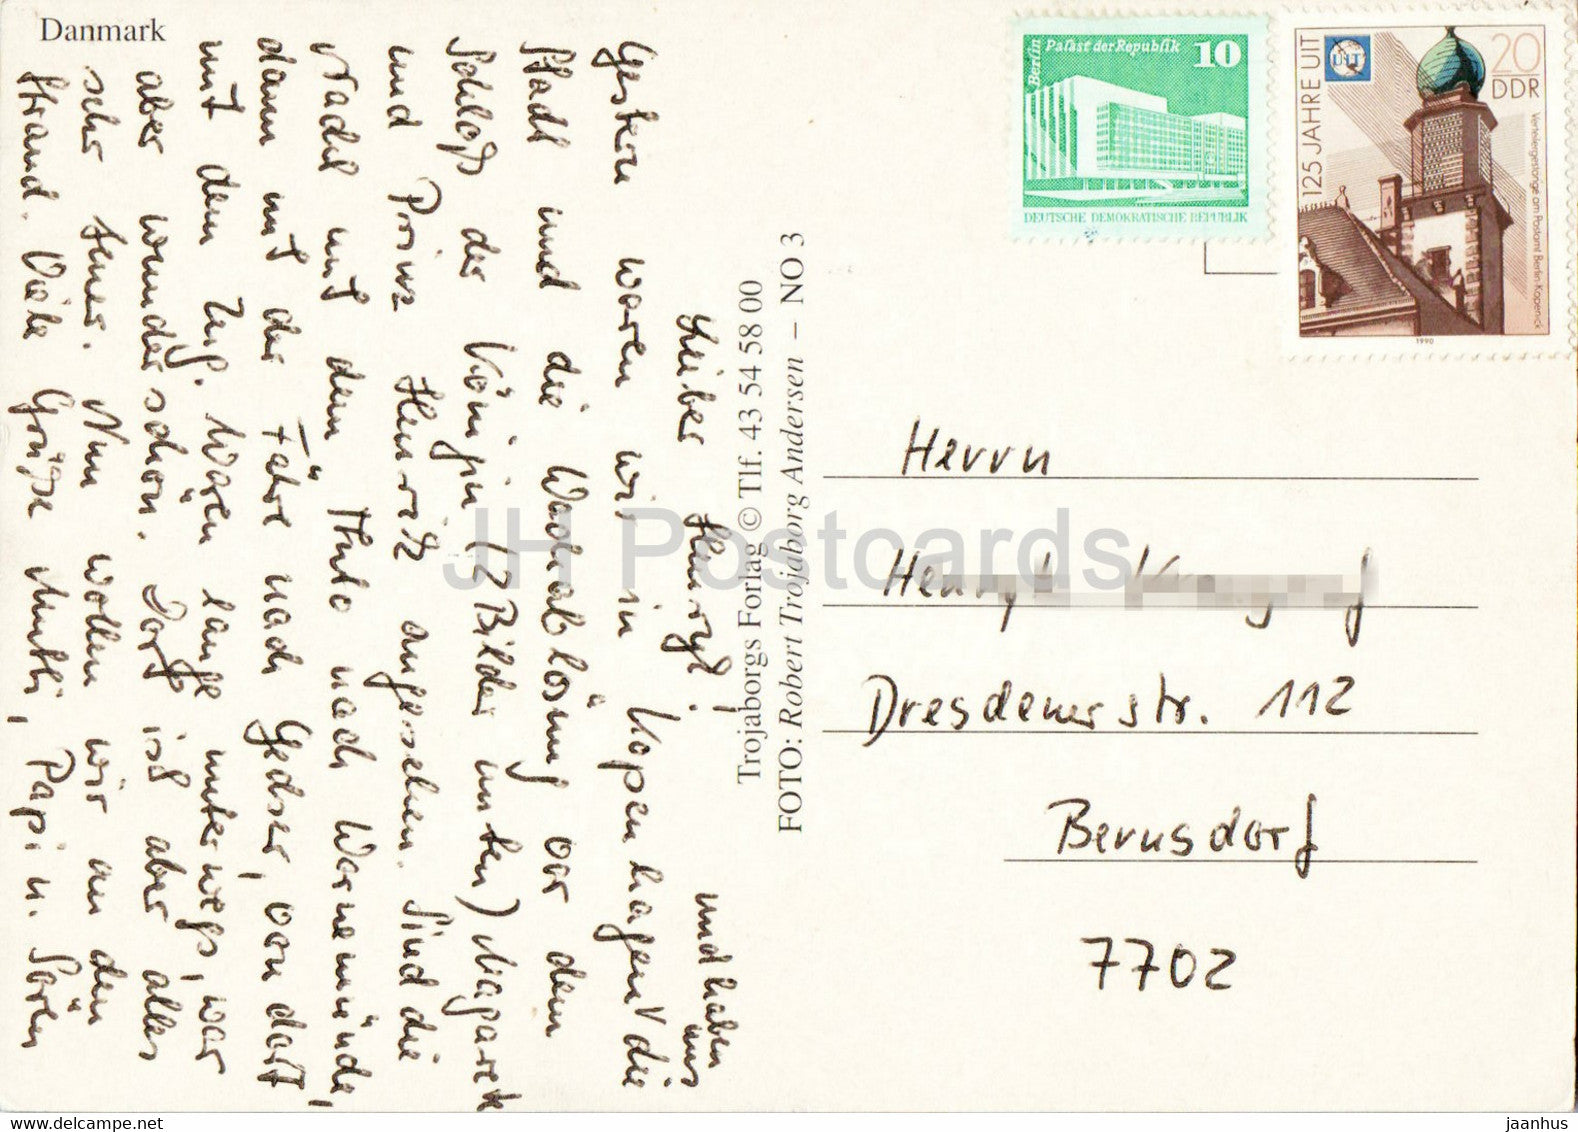 Danmark
Lieber Henryk!
und haben
uns
Gestern waren wir in Kopenhagen √ die
Stadt und die Wachablösung vor dem
Schloß der Königin (2 Bilder unten) Magarete
und Prinz Henrik angesehen. Sind die
Nacht mit dem Auto nach Warnemünde,
dann mit der Fähre nach Gedser, von dort
mit dem Zug. Waren lange unterwegs, war
aber wunderschön. Dort ist aber alles
sehr teuer. Nun wollen wir an den
Strand. Viele Grüße Mutti, Papi u. Sören
Trojaborgs Forlag © Tlf. 43 54 58 00
FOTO: Robert Trojaborg Andersen – NO 3
Berlin
Palast der Republik 10
DEUTSCHE DEMOKRATISCHE REPUBLIK
125 JAHRE UIT
UIT
20
DDR
Verteilergestänge am Postamt Berlin-Köpenick
1990
Herrn
Dresdener str. 112
Bernsdorf
7702
JH Postcards
jaanhus
www.delcampe.net